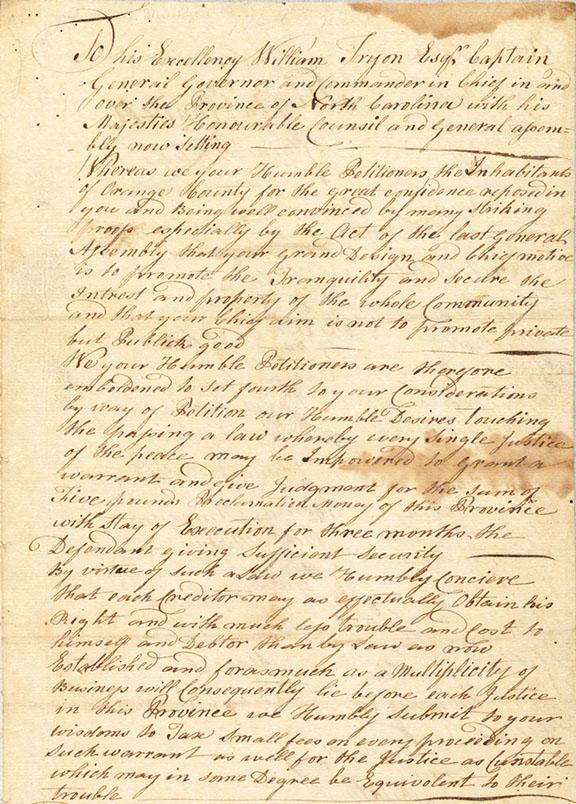 To his Excellency William Tryon Esqr. Captain
General Governor and Commander in Chief in and
over the Province of North Carolina with his
Majesties Honourable Counsil and General assem-
bly now sitting
Whereas we your Humble Petitioners the Inhabitants
of Orange County for the great confidence reposed in
you and Being well convinced by many striking
proofs especially by the Act of the last General
Assembly that your grand Design and Chief motive
is to promote the Tranquility and secure the
Intrest and property of the whole Community
and that your Chief aim is not to promote private
but Publick good
We your Humble Petitioners are therfore
emboldened to set fourth to your Considerations
by way of Petition our Humble Desires touching
the passing a law whereby every single Justice
of the peace may be Impowered to grant a
warrant and give Judgment for the sum of
Five pounds Proclamation Money of this Province
with Stay of Execution for three months the
Defendant giving Sufficient security
By virtue of such a Law we Humbly Concieve
that each Creditor may as effectually Obtain his
Right and with much less trouble and Cost to
himself and Debtor than by Law as now
Established and forasmuch as a Multiplicity of
Business will Consequently lie before each Justice
in this Province we Humbly submit to your
wisdoms to Tax small fees on every proceeding on
such warrant as well for the Justice as Constable
which may in some Degree be Equivolent to their
trouble